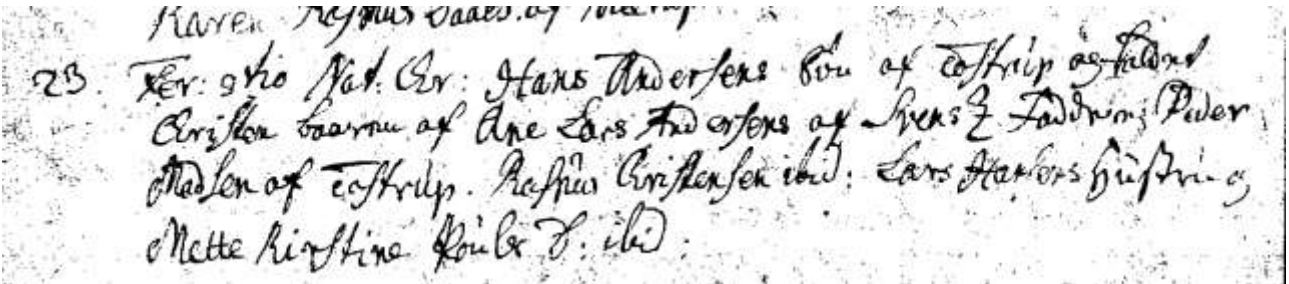 Karen Rasmus Daaes. af
23. Fer: 3tio Nat. Chr: Hans Andersens Søn af Tostrup og kaldet
Christen baaren af Ane Lars Andersens af Faddere; Peder
Madsen af Tostrup. Rasmus Christensen ibid: Lars Hansens Hustru og
Mette Kirstine Pouls D: ibid: